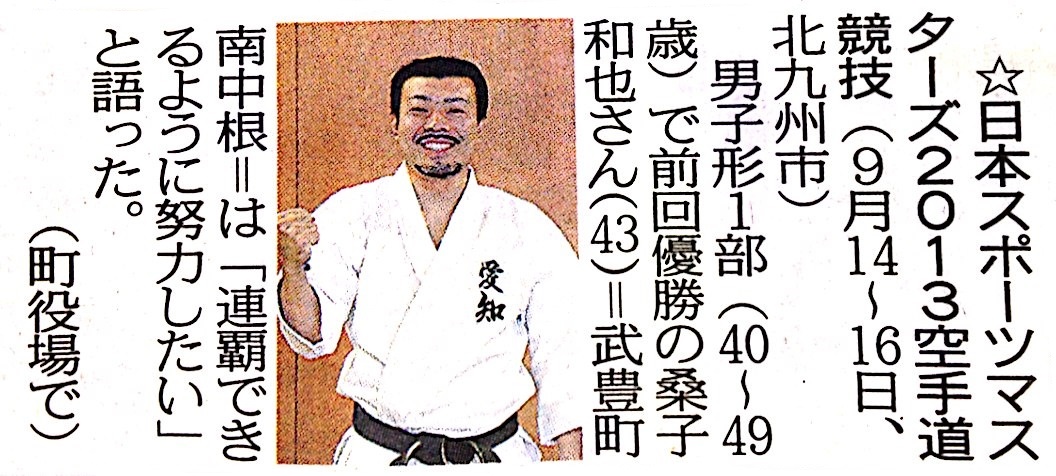 ☆日本スポーツマス
ターズ2013空手道
競技（9月14〜16日、
北九州市）
男子形1部（40〜49
歳）で前回優勝の桑子
和也さん(43)＝武豊町
愛知
南中根＝は「連覇でき
るように努力したい」
と語った。
（町役場で）